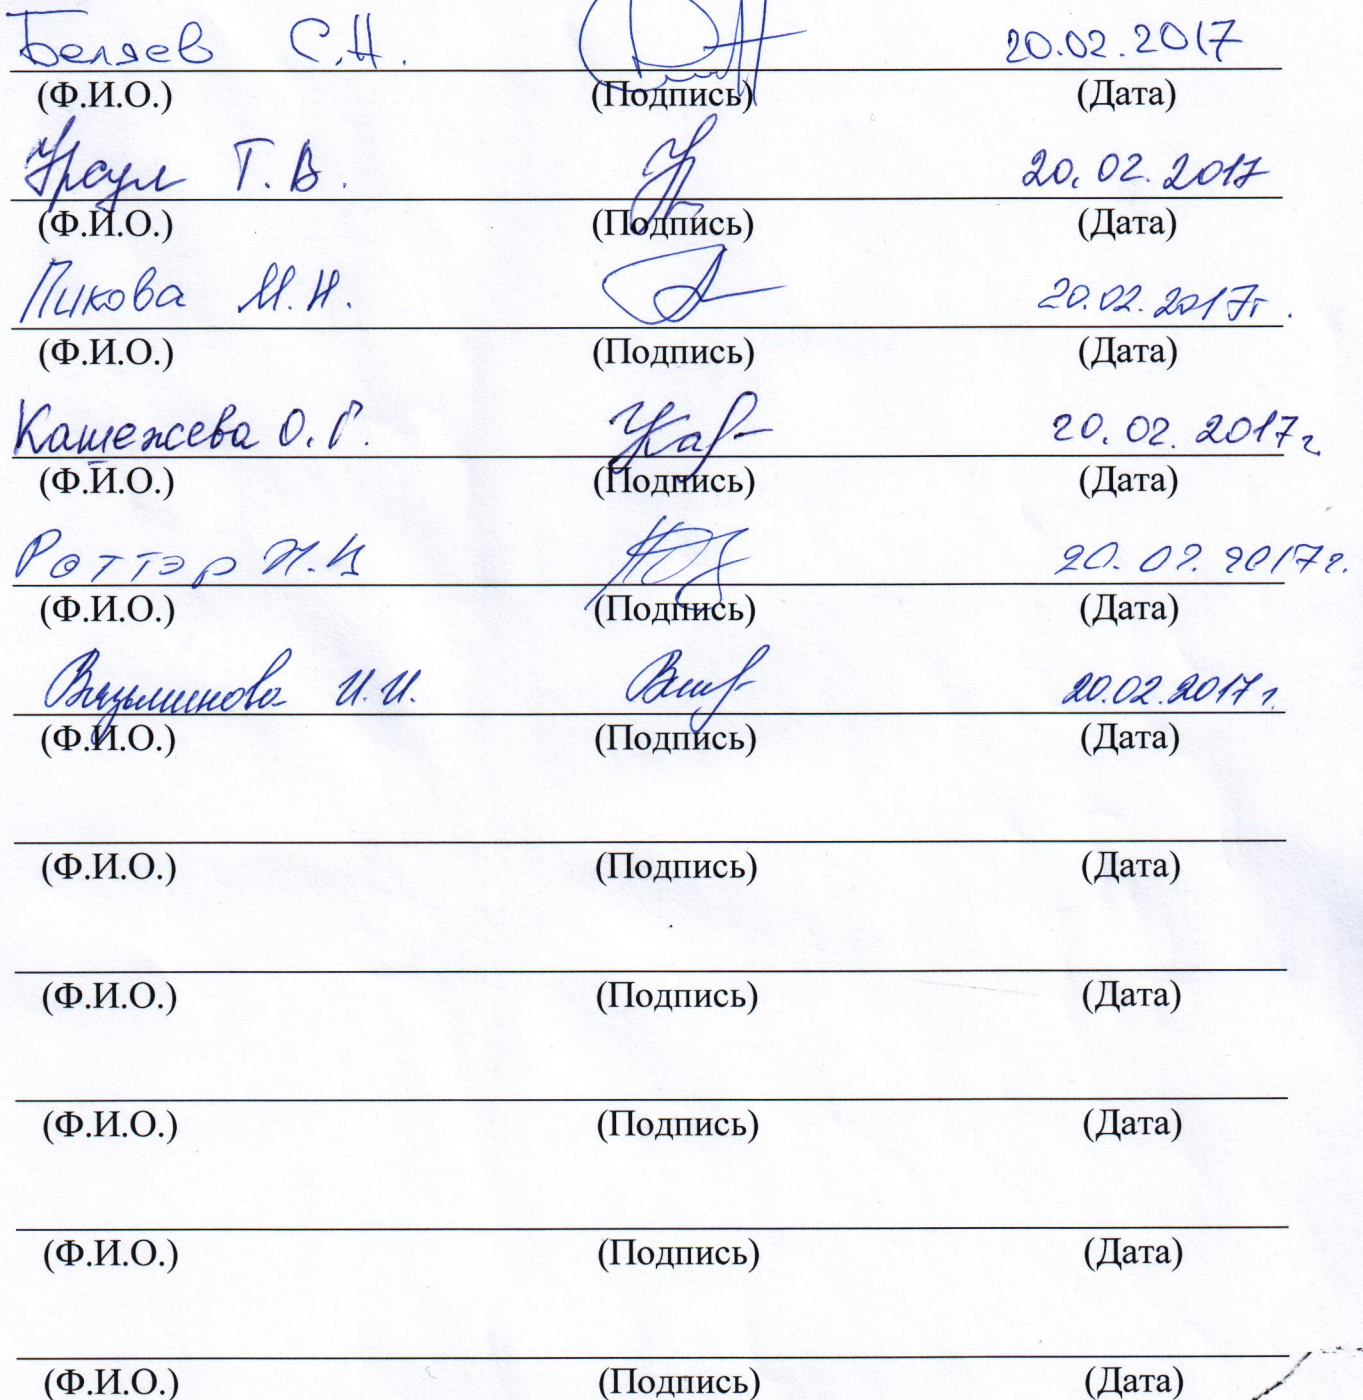 Беляев С.Н. 20.02.2017
(Ф.И.О.) (Подпись) (Дата)
Урсул Т.В. 20.02.2017
(Ф.И.О.) (Подпись) (Дата)
Пикова М.Н. 20.02.2017г.
(Ф.И.О.) (Подпись) (Дата)
Кашежева О.Г. 20.02.2017г
(Ф.И.О.) (Подпись) (Дата)
20.02.2017г.
(Ф.И.О.) (Подпись) (Дата)
И.И. 20.02.2017г.
(Ф.И.О.) (Подпись) (Дата)
(Ф.И.О.) (Подпись) (Дата)
(Ф.И.О.) (Подпись) (Дата)
(Ф.И.О.) (Подпись) (Дата)
(Ф.И.О.) (Подпись) (Дата)
(Ф.И.О.) (Подпись) (Дата)